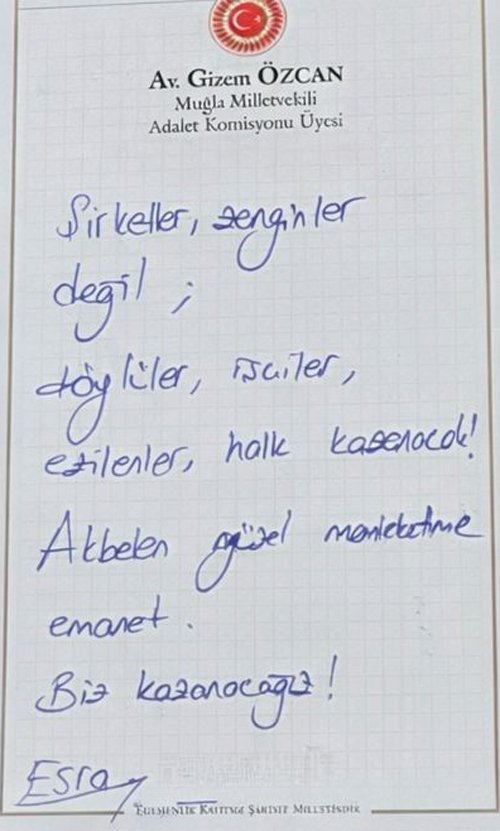 Av. Gizem ÖZCAN
Muğla Milletvekili
Adalet Komisyonu Üyesi
Şirketler, zenginler
değil ;
köylüler, işçiler,
ezilenler, halk kazanacak!
Akbelen güzel memleketime
emanet.
Biz kazanacağız!
Esra